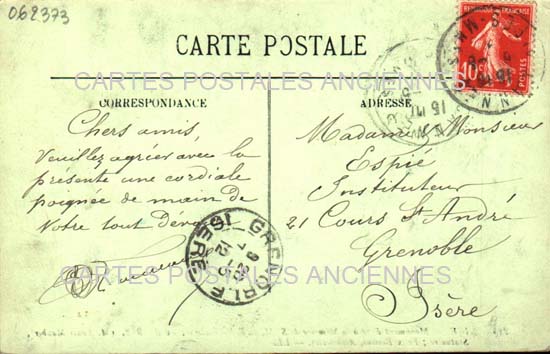 062373
CARTE POSTALE
CARTES POSTALES ANCIENNES
CORRESPONDANCE
Chers amis,
Veuillez agréer avec la
présente une cordiale
poignée de main de
Votre tout Dévoué
ADRESSE
Madame & Monsieur
Espié
Instituteur
21 Cours St André
Grenoble
Isère
REPUBLIQUE FRANÇAISE
10c
POSTES
GRENOBLE
ISERE
CARTES POSTALES ANCIENNES